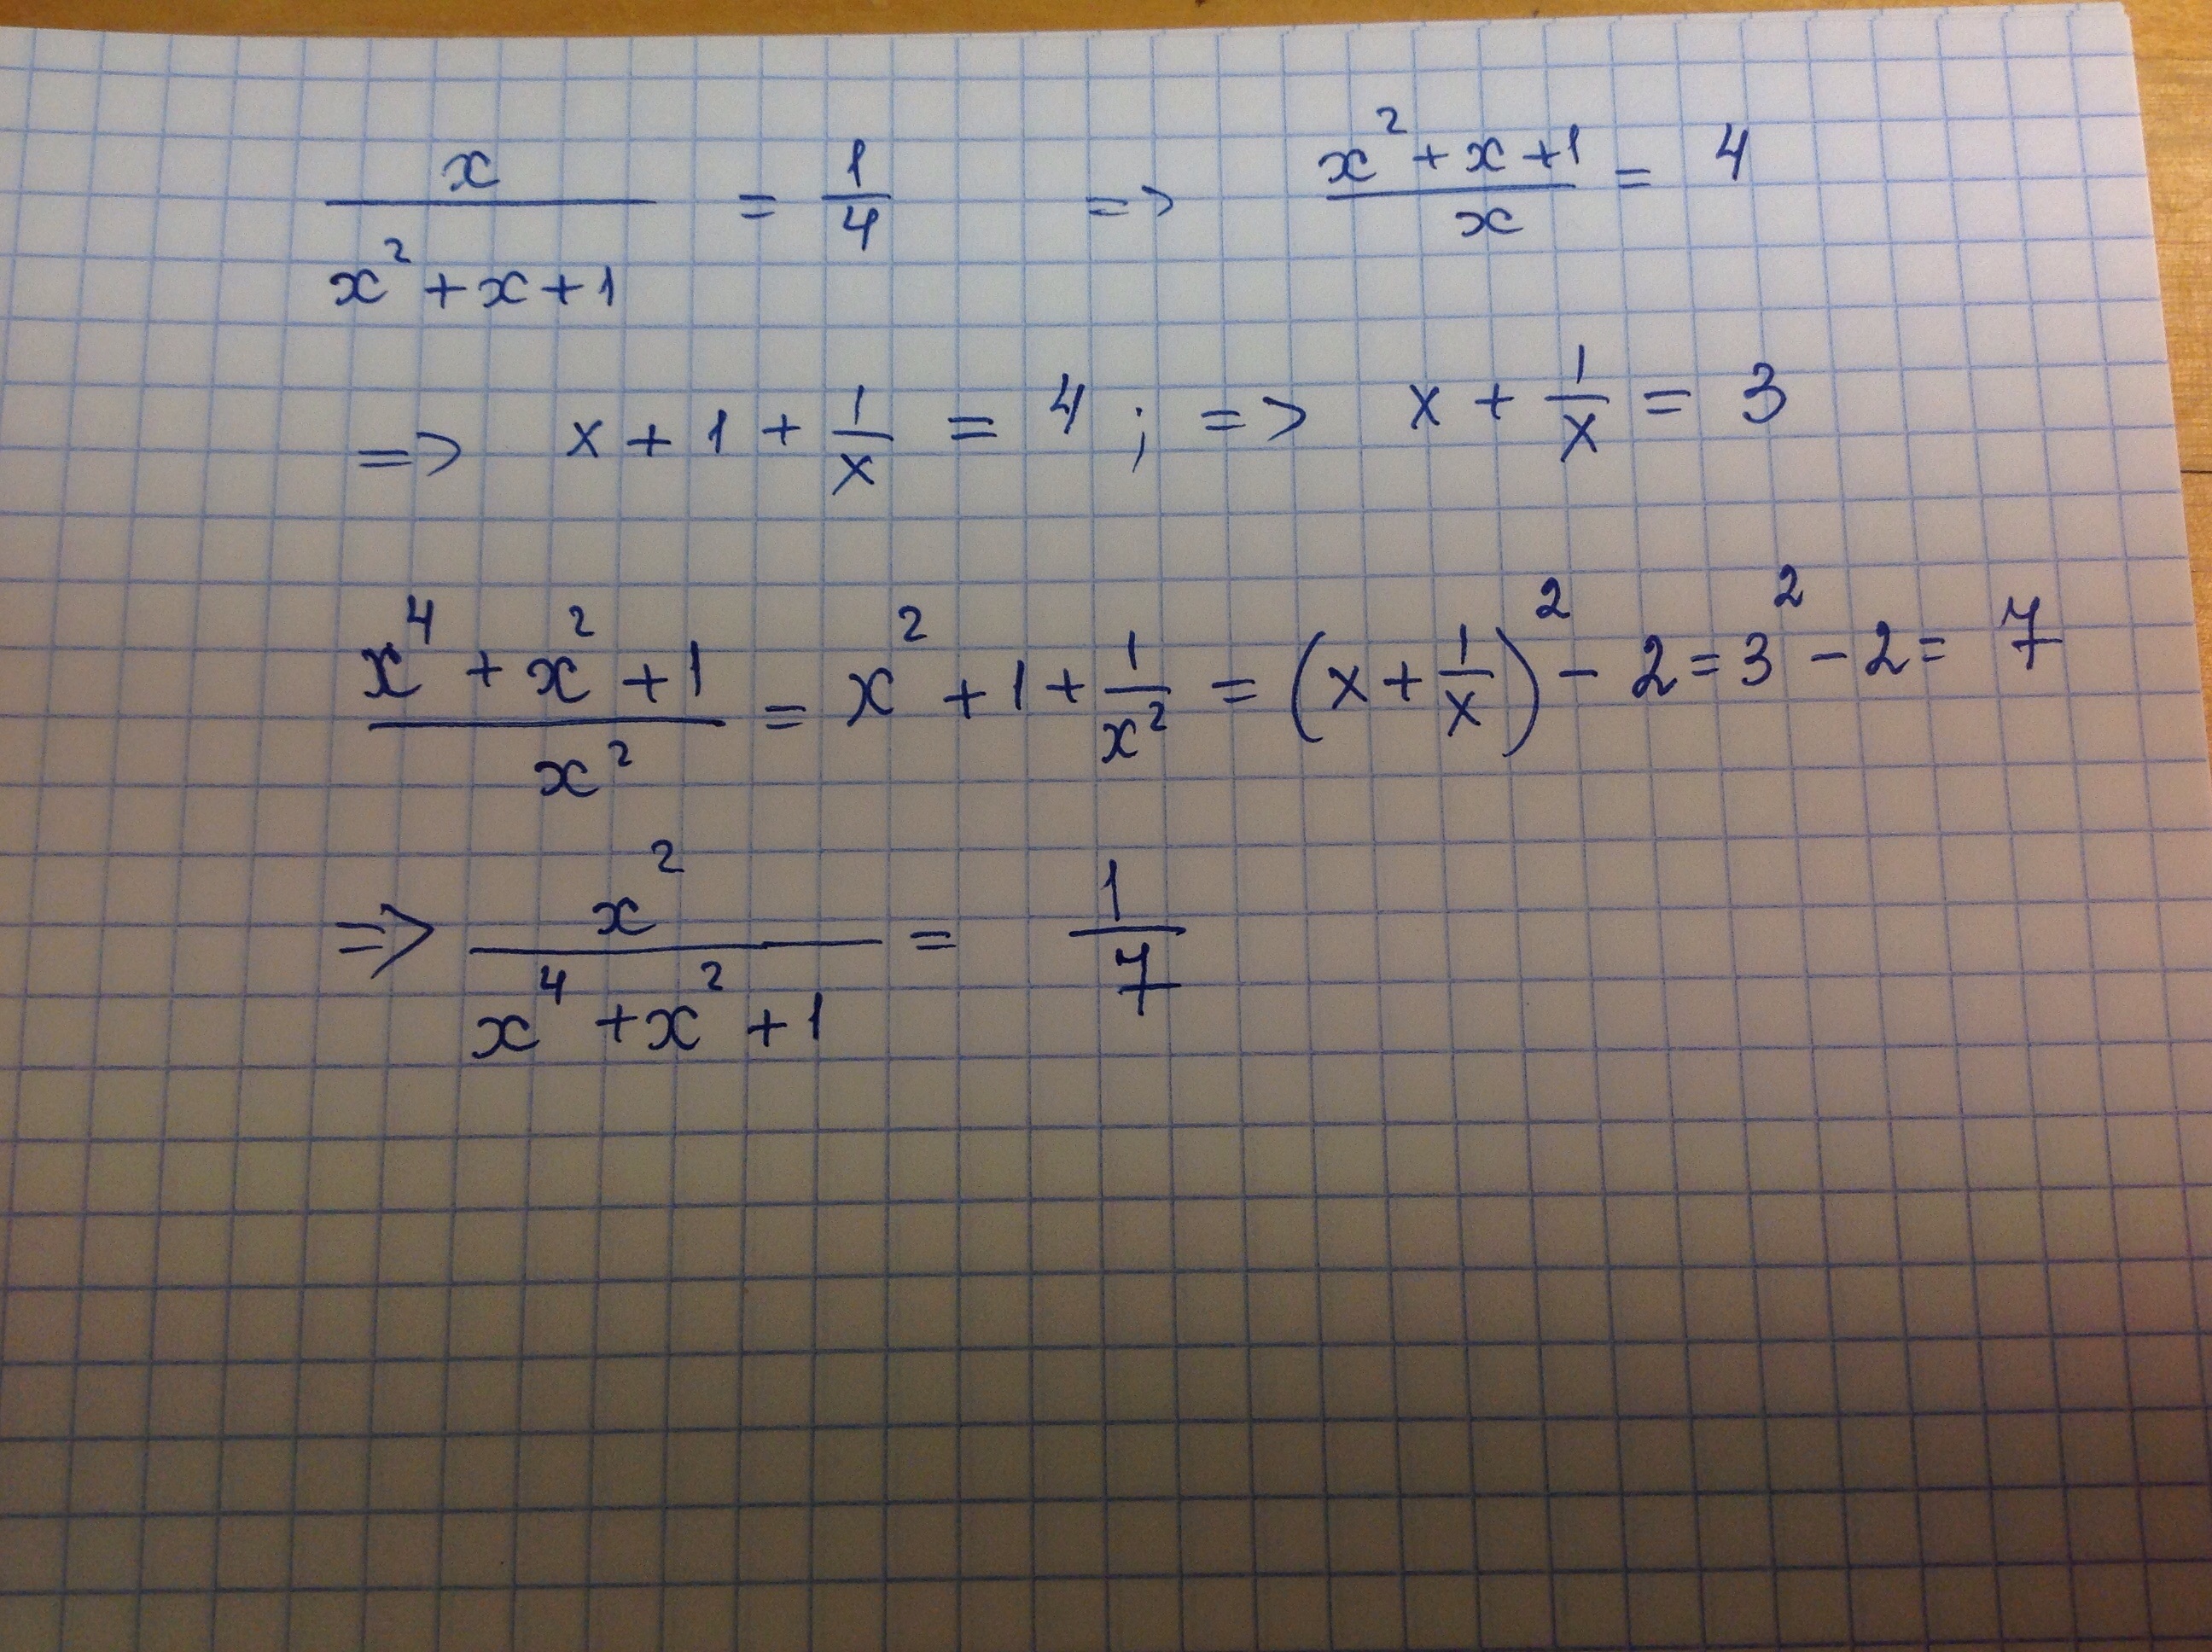 x/(x²+x+1) = 1/4 => (x²+x+1)/x = 4
=> x + 1 + 1/x = 4 ; => x + 1/x = 3
(x⁴+x²+1)/x² = x² + 1 + 1/x² = (x + 1/x)² - 2 = 3² - 2 = 7
=> x²/(x⁴+x²+1) = 1/7